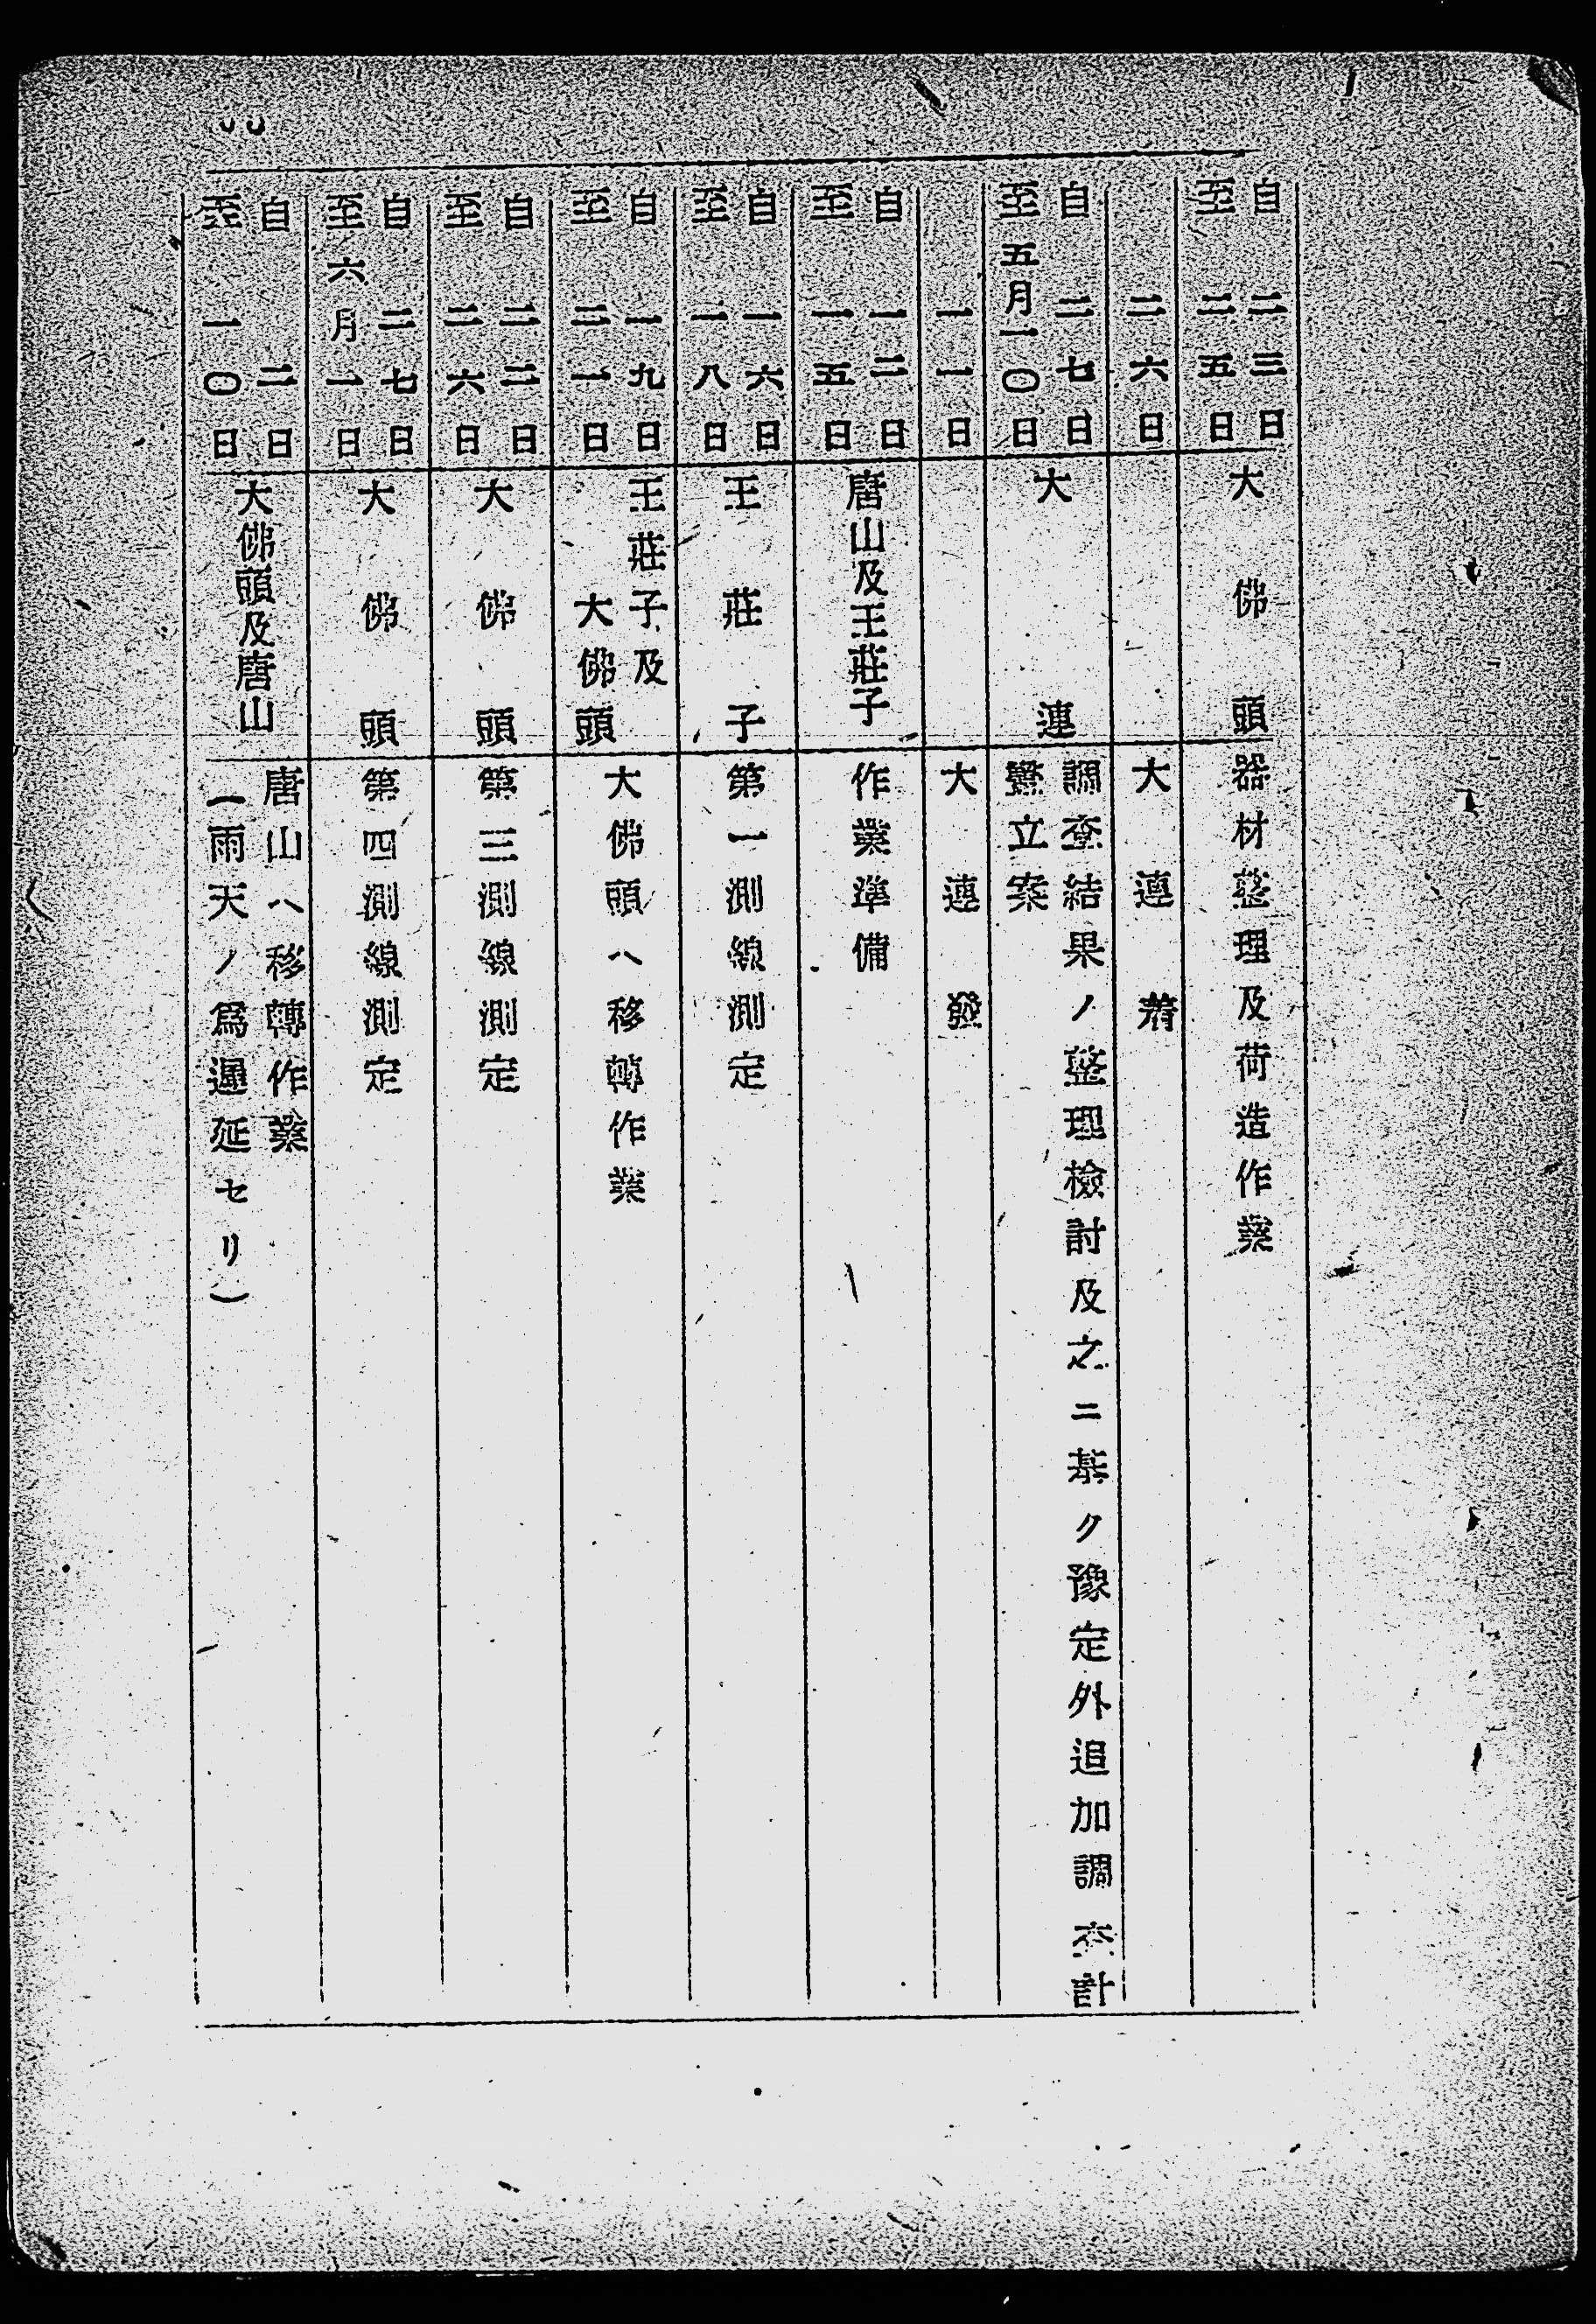 自　二三日
至　二五日
大佛頭
器材整理及荷造作業
二六日
大連着
自　二七日
至五月一〇日
大連
調査結果ノ整理檢討及之ニ基ク豫定外追加調査計
畫立案
一一日
大連發
自　一二日
至　一五日
唐山及王莊子
作業準備
自　一六日
至　一八日
王莊子
第一測線測定
自　一九日
至　二一日
王莊子及
大佛頭
大佛頭ヘ移轉作業
自　二二日
至　二六日
大佛頭
第三測線測定
自　二七日
至六月一日
大佛頭
第四測線測定
自　二日
至　一〇日
大佛頭及唐山
唐山ヘ移轉作業
（雨天ノ爲遲延セリ）